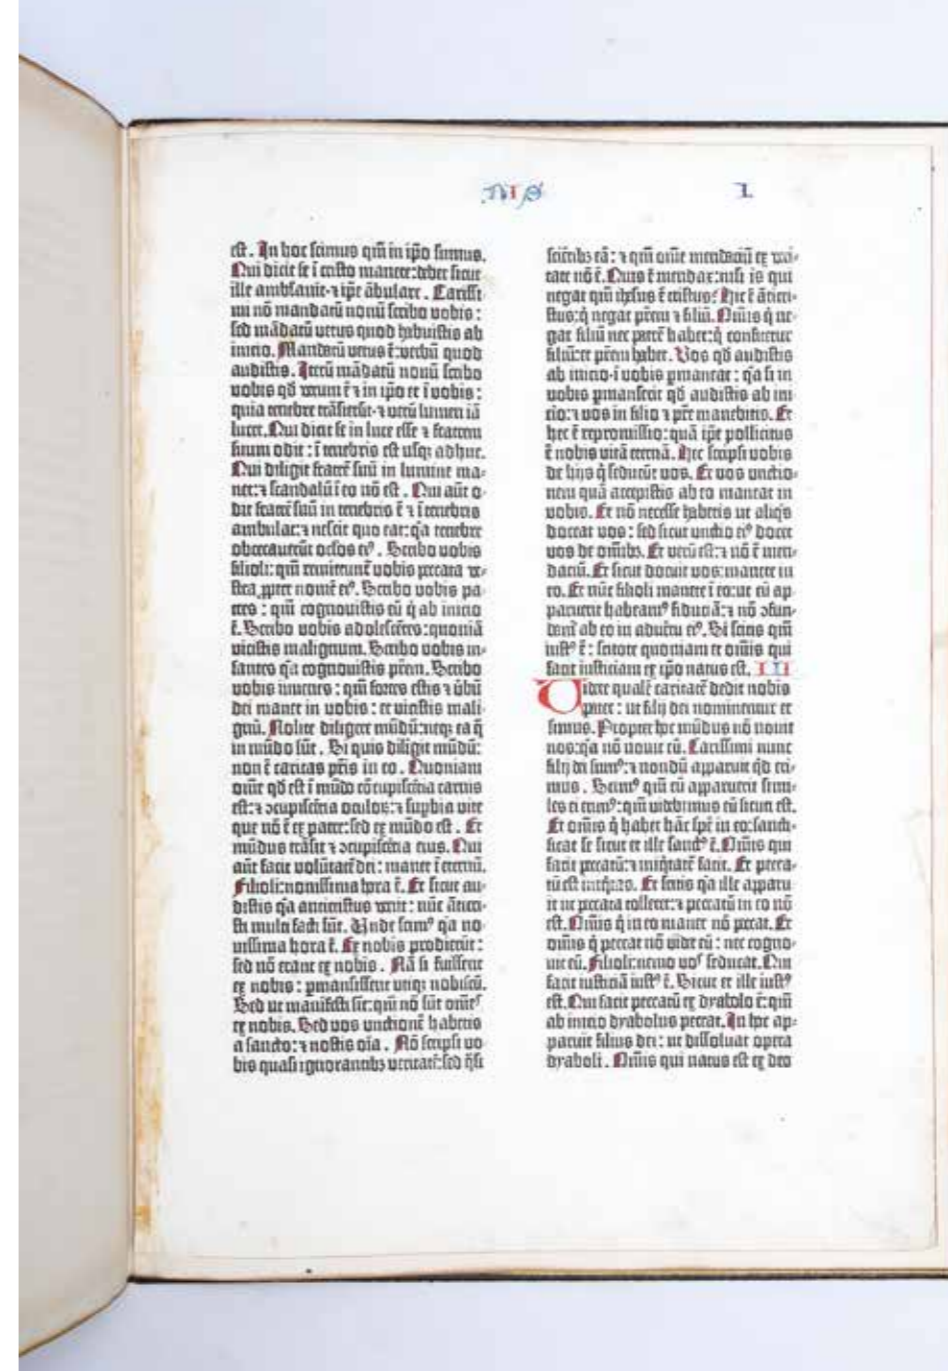 NIS I.
est. In hoc scimus qm̄ in ip̄o sumus.
Qui dicit se ī cristo manere: debet sicut
ille ambĺauit· ⁊ ip̄e ābulare. Carissi-
mi nō mandatū nouū scribo vobis:
sed mādatū vetus quod habuistis ab
inicio. Mandatū vetus ē: verbū quod
audistis. Iterū mādatū nouū scribo
vobis qd̄ verum ē ⁊ in ip̄o et ī vobis:
quia tenebre trāsierūt· ⁊ verū lumen iā
lucet. Qui dicit se in luce esse ⁊ fratrem
suum odit: ī tenebris est usqȝ adhuc.
Qui diligit fratrē suū in lumine ma-
net: ⁊ scandalū ī eo nō est. Qui aūt o-
dit fratrē suū in tenebris ē ⁊ ī tenebris
ambulat: ⁊ nescit quo eat: qa tenebre
obcecauerūt ocĺos eiꝰ. Scribo vobis
filioli: qm̄ remittunt̄ vobis peccata ve-
stra ꝓpter nomē eiꝰ. Scribo vobis pa-
tres: qm̄ cognouistis eū q̇ ab inicio
ē. Scribo vobis adolescētes: quoniā
vicistis malignum. Scribo vobis in-
fantes qa cognouistis prēm. Scribo
vobis iuuenes: qm̄ fortes estis ⁊ v̄bū
dei manet in vobis: et vicistis mali-
gnū. Nolite diligere mūdū: neqȝ ea q̄
in mūdo sūt. Si quis diligit mūdū:
non ē caritas pr̄is in eo. Quoniam
om̄e qd̄ est ī mūdo cōcupiscētia carnis
est: ⁊ ɔcupiscētia oculoꝝ: ⁊ supbia vite
que nō ē ex patre: sed ex mūdo est. Et
mūdus trāsit ⁊ ɔcupiscētia eius. Qui
aūt facit volūtatē dei: manet ī eternū.
Filioli: nouissima hora ē. Et sicut au-
distis qa anticristus venit: nūc ātícri-
sti multi facti sūt. Unde scimꝰ qa no-
uissima hora ē. Ex nobis prodierūt:
sed nō erant ex nobis. Nā si fuissent
ex nobis: ꝑmansissent utiqȝ nobiscū.
Sed ut manifesti sīt: qm̄ nō sūt om̄es
ex nobis. Sed vos unctionē habetis
a sancto: ⁊ nostis oīa. Nō scripsi vo
bis quasi ignorantibȝ veritatē: sed q̄si
sciētibȝ eā: ⁊ qm̄ om̄e mendaciū ex veri-
tate nō ē. Quis ē mendax: nisi is qui
negat qm̄ ih̄esus ē cristus? Hic ē ātícri-
stus: q̇ negat prēm ⁊ filiū. Om̄is q̇ ne-
gat filiū nec patrē habet: q̇ confitetur
filiū: et prēm habet. Vos qd̄ audistis
ab inicio· ī vobis ꝑmaneat: qa si in
vobis ꝑmanserit qd̄ audistis ab ini
cio: ⁊ vos in filio ⁊ prē manebitis. Et
hec ē repromissio: quā ip̄e pollicitus
ē nobis vitā eternā. Hec scripsi vobis
de hijs q̇ seducūt vos. Et vos unctio-
nem quā accepistis ab eo maneat in
vobis. Et nō necesse habetis ut aliq̇s
doceat vos: sed sicut unctio eiꝰ docet
vos de om̄ibȝ. Et verū est: ⁊ nō ē men-
daciū. Et sicut docuit vos: manete in
eo. Et nūc filioli manete ī eo: ut cū ap
paruerit habeamꝰ fiduciā: ⁊ nō ɔfun-
damr̄ ab eo in aduētu eiꝰ. Si scitis qm̄
iustꝰ ē: scitote quoniam et om̄is qui
facit iusticiam ex ip̄o natus est. III
Videte qualē caritatē dedit nobis
pater: ut filij dei nominemur et
simus. Propter hoc mūdus nō nouit
nos: qa nō nouit eū. Carissimi nunc
filij dei sumꝰ: ⁊ nondū apparuit qd̄ eri-
mus. Scimꝰ qm̄ cū apparuerit simi-
les ei erimꝰ: qm̄ videbimus eū sicuti est.
Et om̄is q̇ habet hāc spē in eo: sancti-
ficat se sicut et ille sanctꝰ ē. Om̄is qui
facit peccatū: ⁊ iniq̇tatē facit. Et pecca-
tū est iniq̇tas. Et scitis qa ille apparu
it ut peccata tolleret: ⁊ peccatū in eo nō
est. Om̄is q̇ in eo manet nō peccat. Et
om̄is q̇ peccat nō videt eū: nec cogno-
uit eū. Filioli: nemo vos seducat. Qui
facit iusticiā iustꝰ ē. Sicut et ille iustꝰ
est. Qui facit peccatū ex dyabolo ē: qm̄
ab inicio dyabolus peccat. In hoc ap-
paruit filius dei: ut dissoluat opera
dyaboli. Om̄is qui natus est ex deo